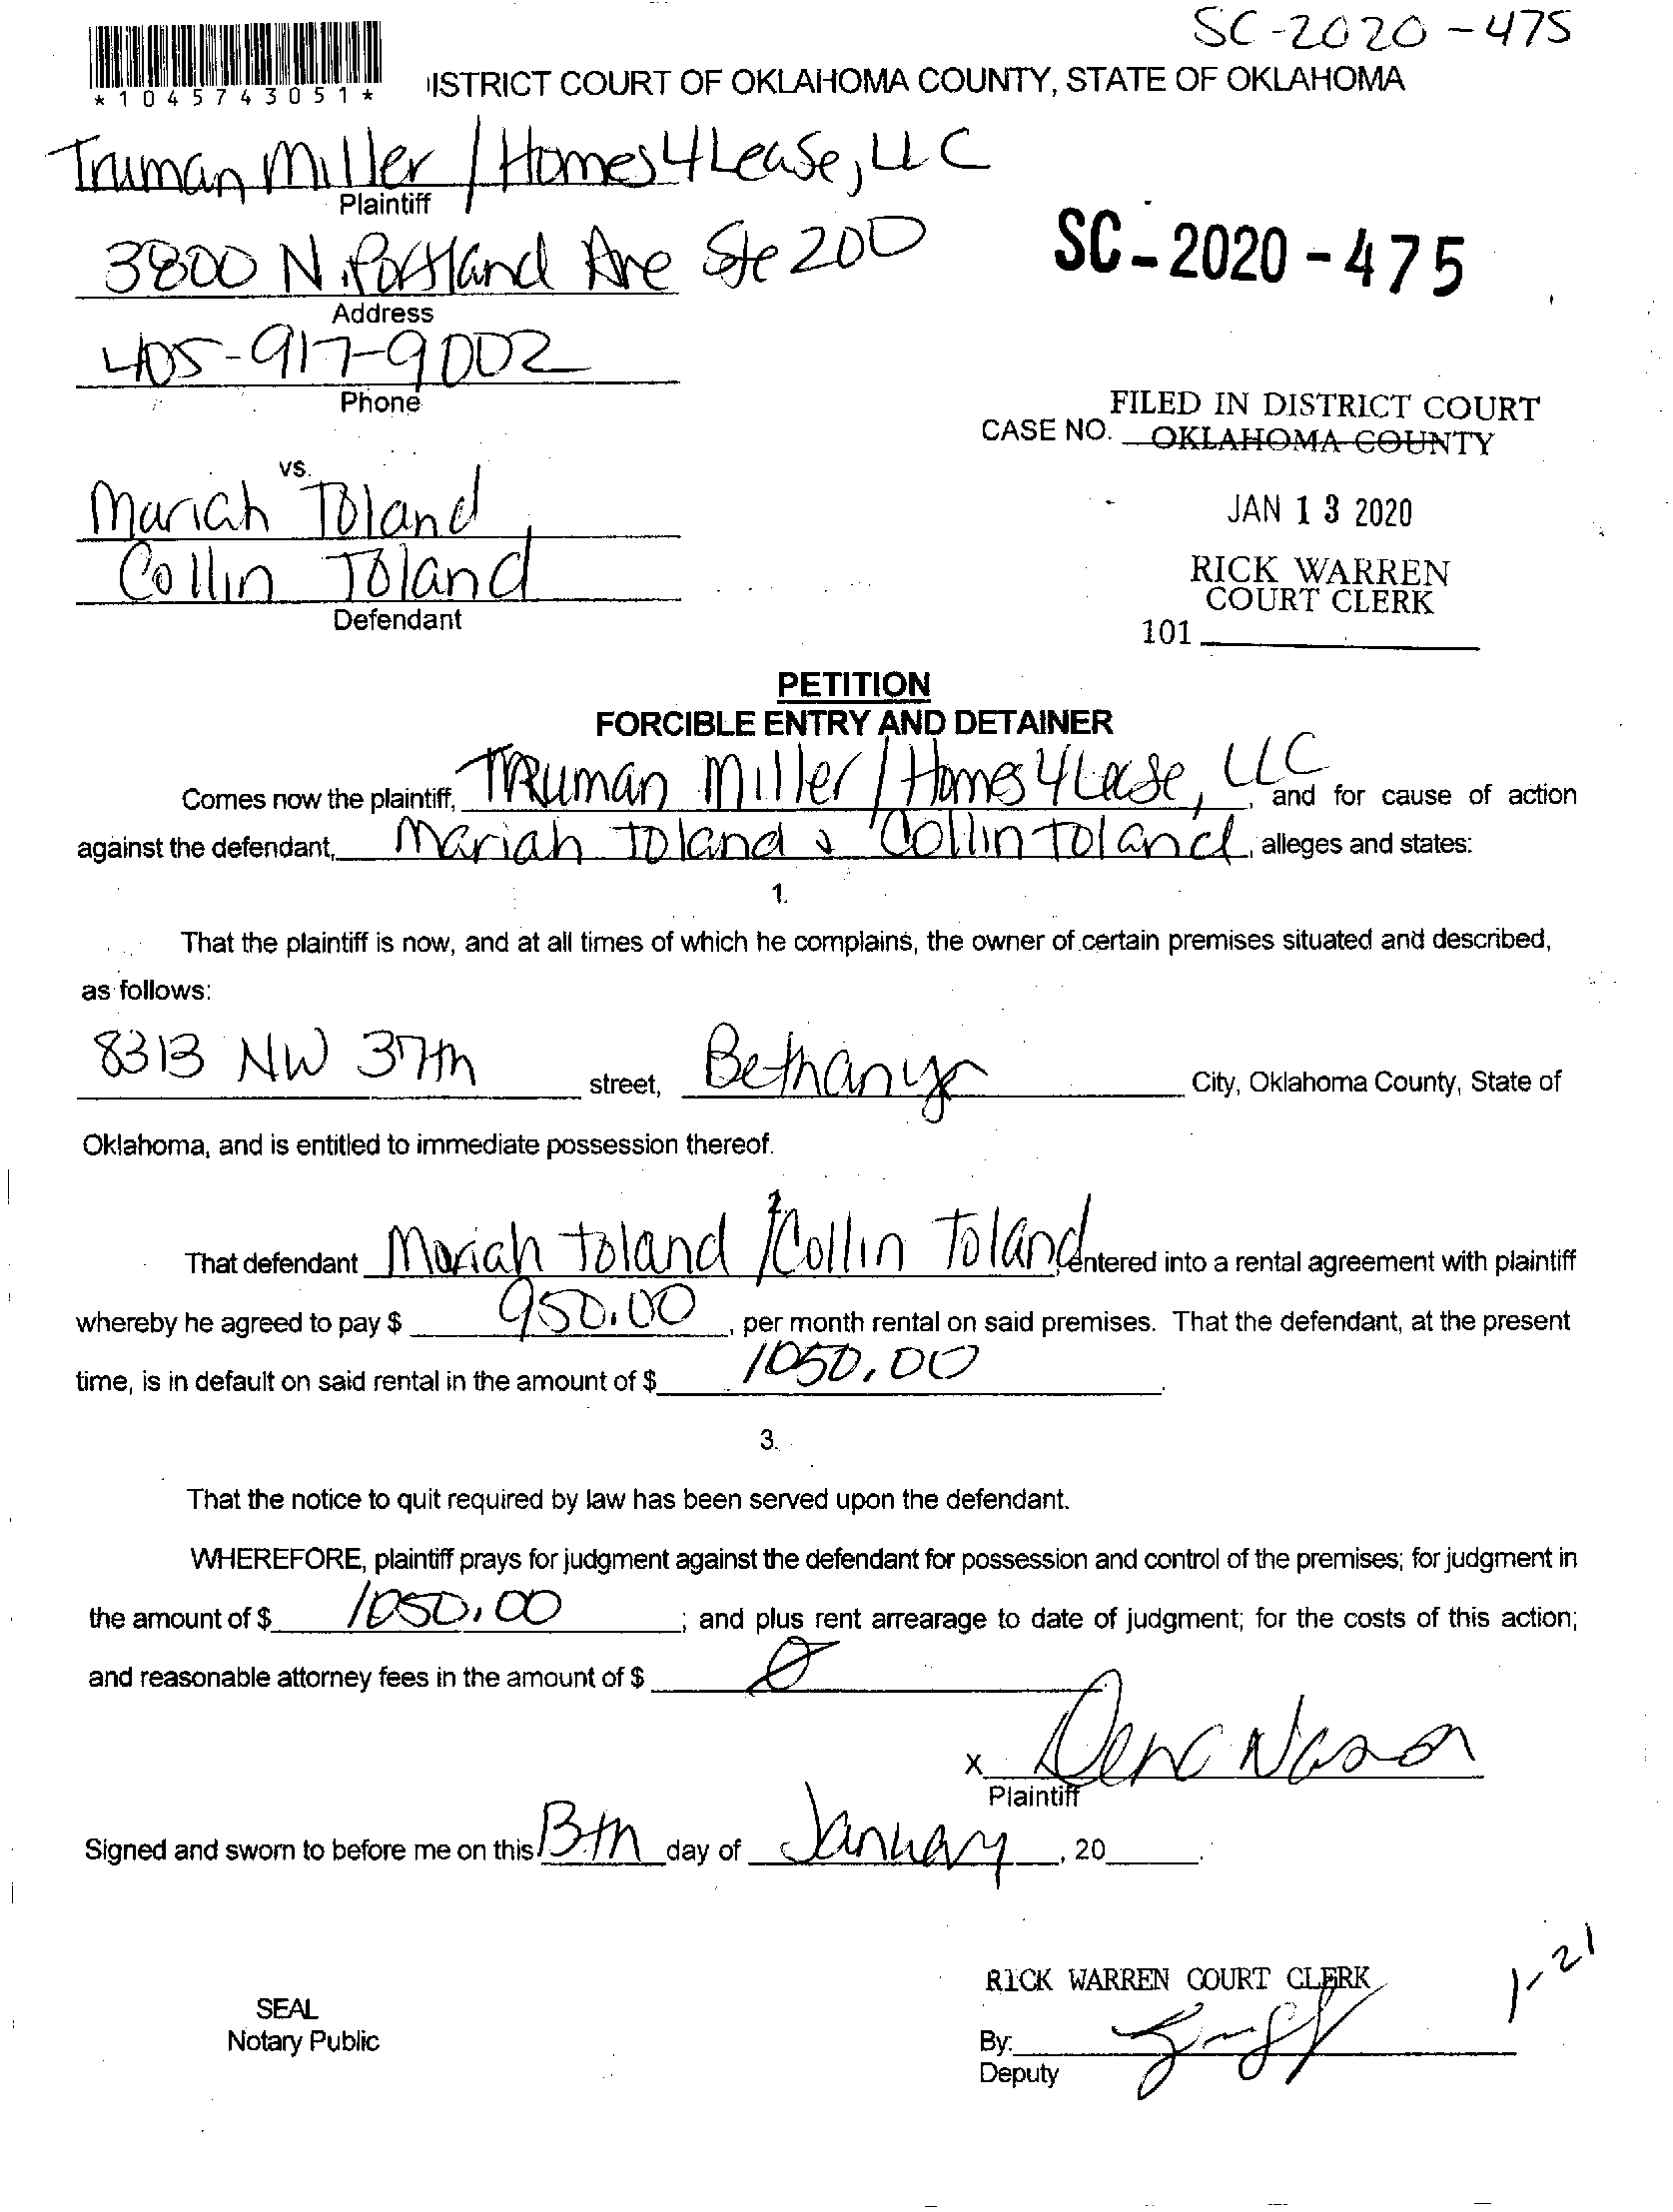 SC-2020-475
*1045743051*
ISTRICT COURT OF OKLAHOMA COUNTY, STATE OF OKLAHOMA
Truman Miller / Homes4Lease, LLC
Plaintiff
3800 N. Portland Ave Ste 200
SC-2020-475
Address
405-917-9002
Phone
FILED IN DISTRICT COURT
CASE NO. OKLAHOMA COUNTY
vs.
Mariah Toland,
JAN 13 2020
Collin Toland
RICK WARREN
COURT CLERK
Defendant
101
PETITION
FORCIBLE ENTRY AND DETAINER
Comes now the plaintiff, Truman Miller / Homes4Lease, LLC, and for cause of action
against the defendant, Mariah Toland & Collin Toland, alleges and states:
1.
That the plaintiff is now, and at all times of which he complains, the owner of certain premises situated and described,
as follows:
8313 NW 37th street, Bethany City, Oklahoma County, State of
Oklahoma, and is entitled to immediate possession thereof.
That defendant Mariah Toland / Collin Toland, entered into a rental agreement with plaintiff
whereby he agreed to pay $ 950.00, per month rental on said premises. That the defendant, at the present
time, is in default on said rental in the amount of $ 1050.00.
3.
That the notice to quit required by law has been served upon the defendant.
WHEREFORE, plaintiff prays for judgment against the defendant for possession and control of the premises; for judgment in
the amount of $ 1050.00; and plus rent arrearage to date of judgment; for the costs of this action;
and reasonable attorney fees in the amount of $ 0
X
Plaintiff
Signed and sworn to before me on this 13th day of January, 20 .
1-21
RICK WARREN COURT CLERK
SEAL
Notary Public
By:
Deputy